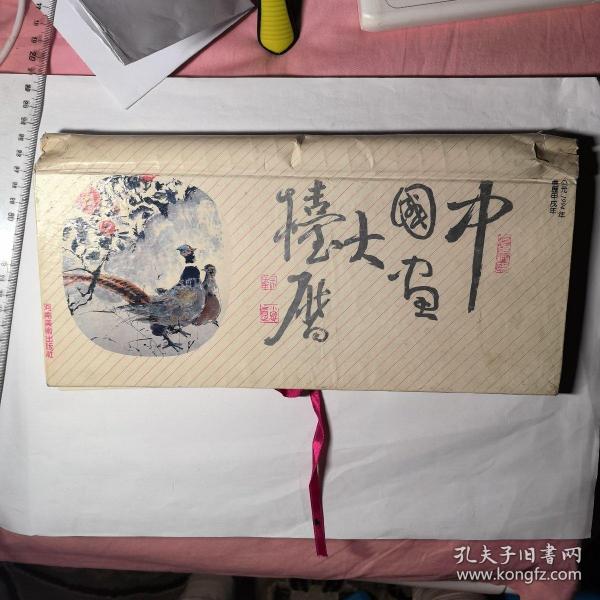 中國畫
大檯曆
公元1994年
農曆甲戌年
河南美術出版社
孔夫子旧書网
www.kongfz.com